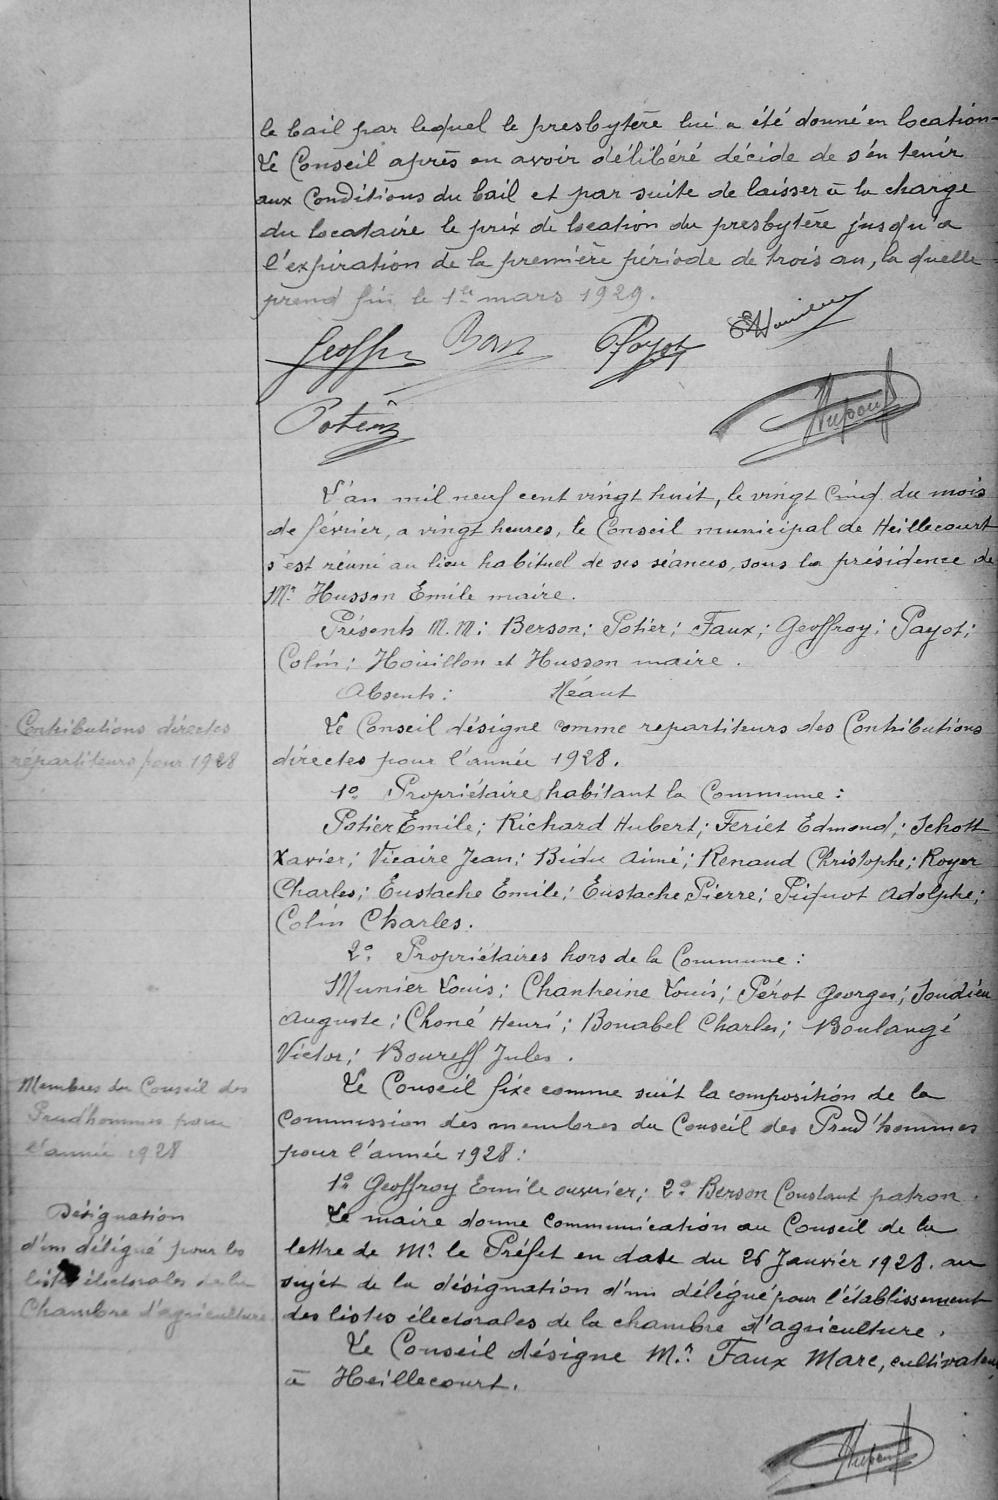 le bail par lequel le presbytère lui a été donné en location-
Le Conseil après en avoir délibéré décide de s'en tenir
aux Conditions du bail et par suite de laisser à la charge
du locataire le prix de location du presbytère jusqu'a
l'expiration de la première période de trois an, la quelle
prend fin le 1er mars 1929.
Geoffroy Payot EHouillon
Potier
L'an mil neuf cent vingt huit, le vingt Cinq du mois
de février, a vingt heures, le Conseil municipal de Heillecourt
s'est réuni au lieu habituel de ses séances, sous la présidence de
Mr Husson Emile maire.
Présents M.M: Berson; Potier; Faux; Geoffroy; Payot;
Colin; Houillon et Husson maire.
Absents: Néant
Contributions directes
répartiteurs pour 1928
Le Conseil désigne comme repartiteurs des Contributions
directes pour l'année 1928.
1º Propriétaires habitant la Commune:
Potier Emile; Richard Hubert; Feriet Edmond; Schott
Xavier; Vicaire Jean; Bidu Aimé; Renaud Christophe; Royer
Charles; Eustache Emile; Eustache Pierre; Piquot Adolphe;
Colin Charles.
2º Propriétaires hors de la Commune:
Munier Louis; Chantreine Louis; Pérot Georges; Soudieu
Auguste; Choné Henri; Bonabel Charles; Boulangé
Victor; Boureff Jules.
Membres du Conseil des
Prudhommes pour
l'année 1928
Le Conseil fixe comme suit la composition de la
commission des membres du Conseil des Prud'hommes
pour l'année 1928:
1º Geoffroy Emile ouvrier; 2º Berson Constant patron.
Désignation
d'un délégué pour les
listes électorales de la
Chambre d'agriculture
Le maire donne communication au Conseil de la
lettre de Mr le Préfet en date du 26 Janvier 1928. au
sujet de la désignation d'un délégué pour l'établissement
des listes électorales de la chambre d'agriculture.
Le Conseil désigne Mr Faux Marc, cultivateur
à Heillecourt.